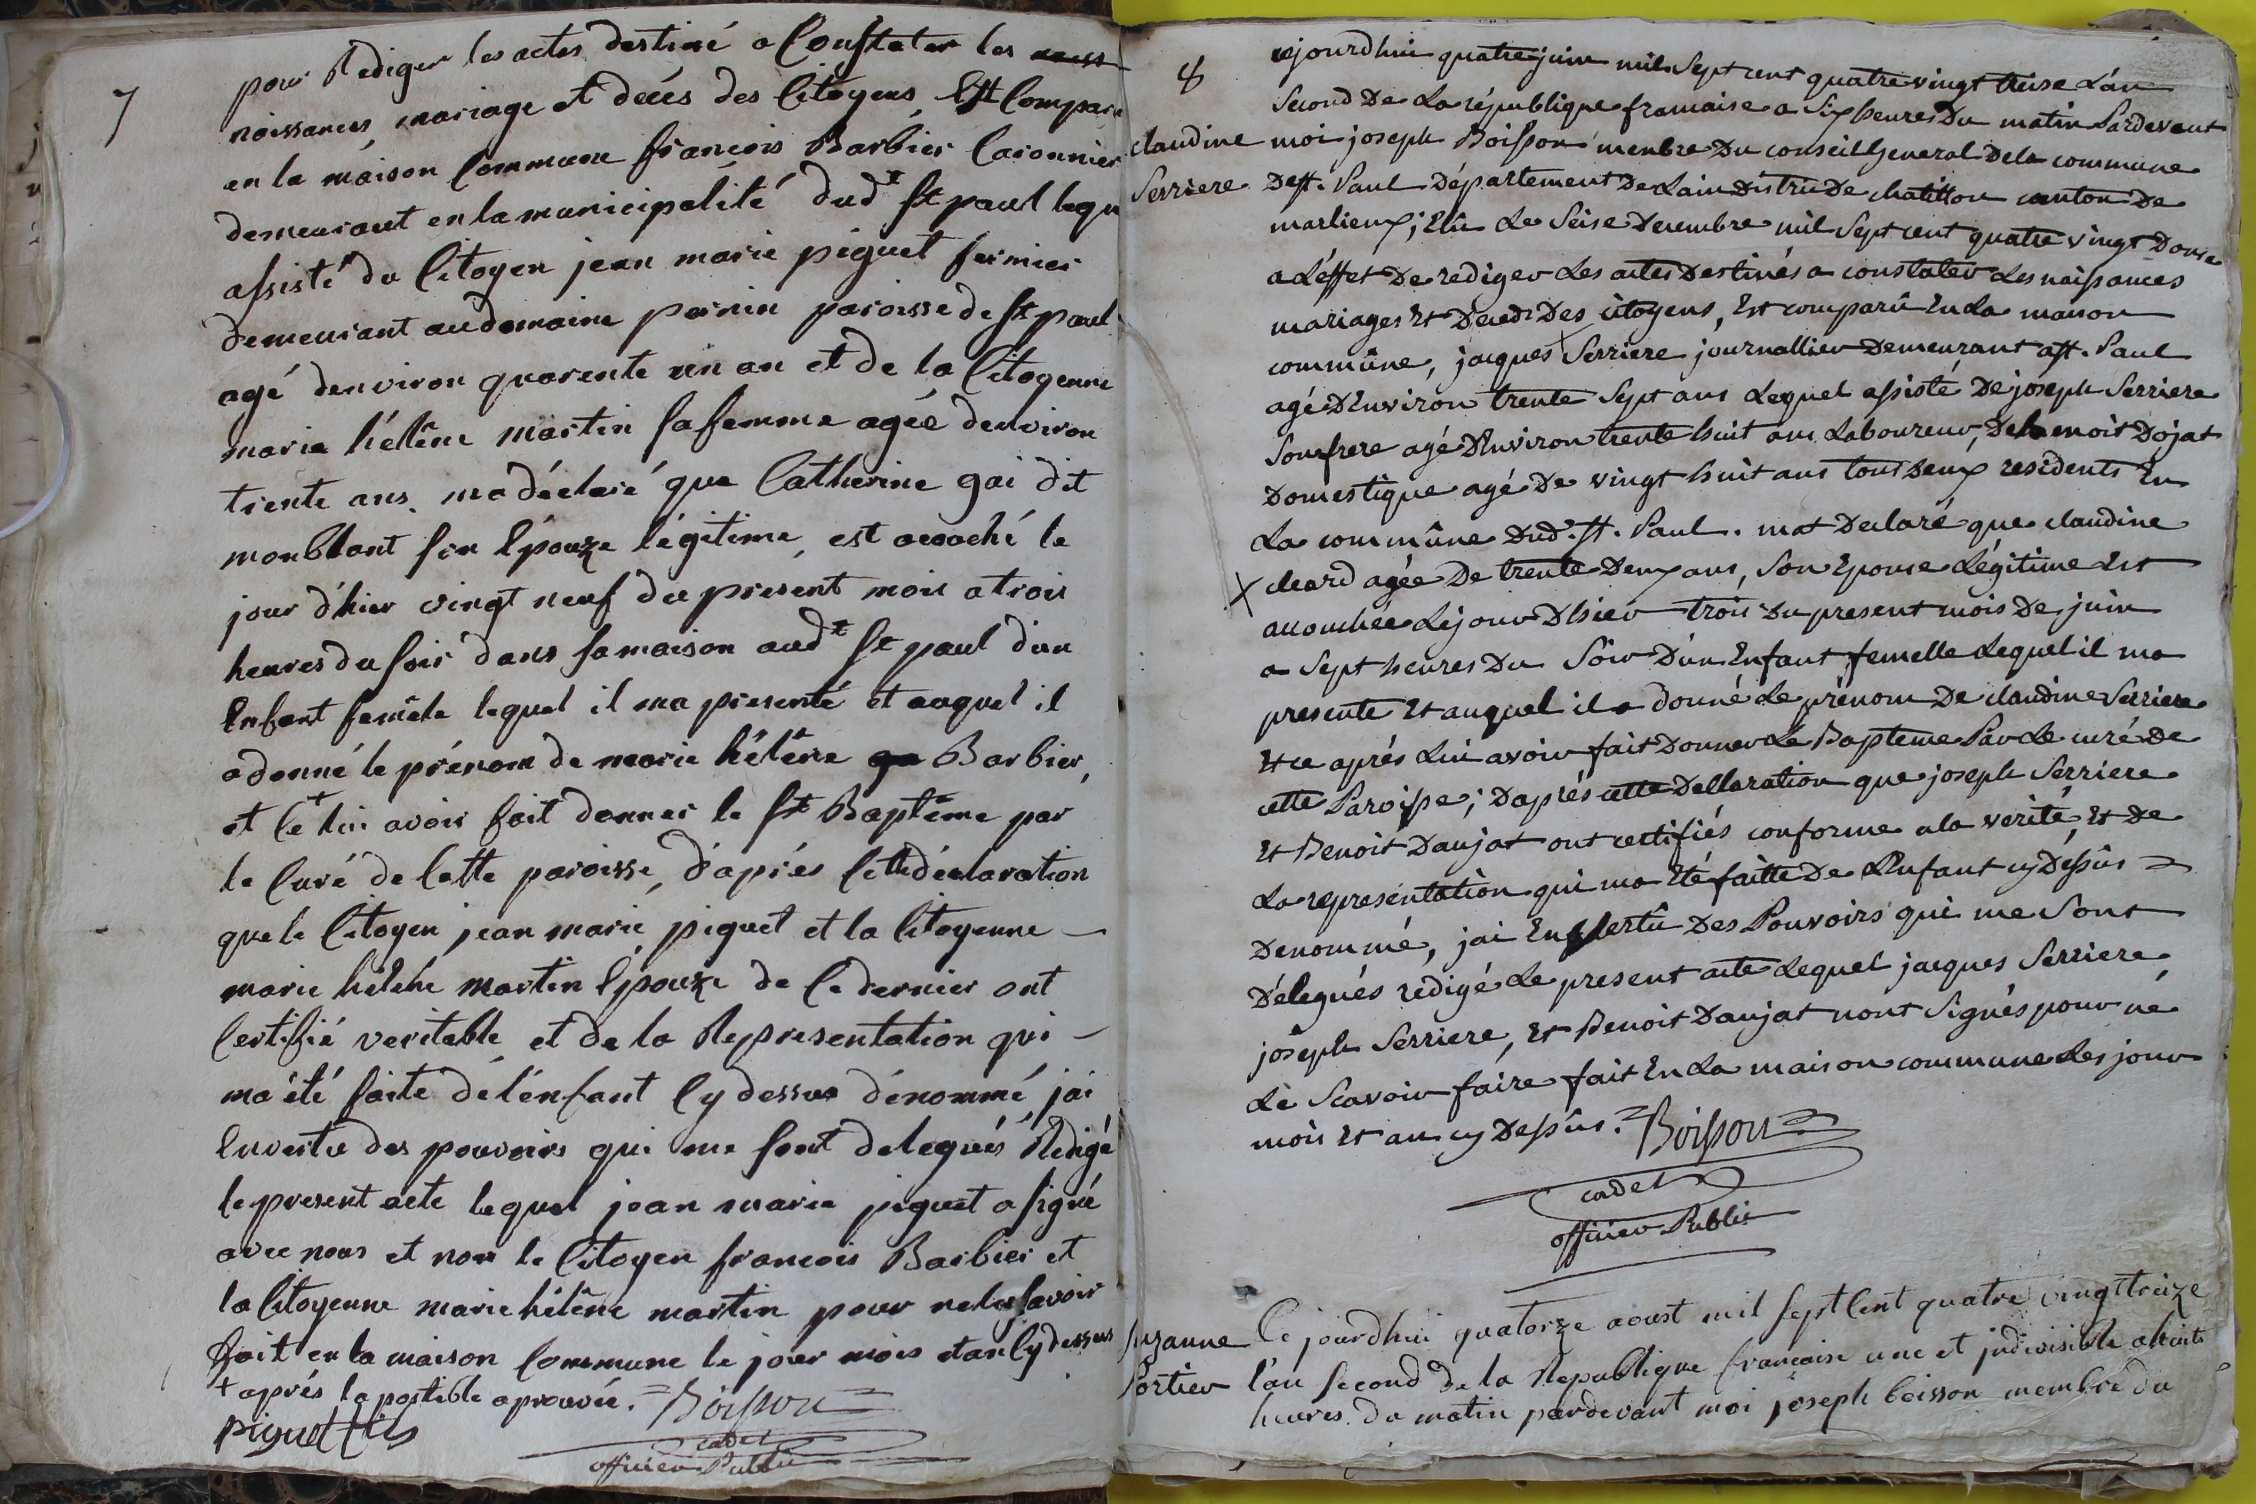 7
pour Rediger les actes destiné a Constater les
naissances, mariage et décés des Citoyens, Est Comparu
en la maison Commune françois Barbier
demeurant en la municipalité dudt St paul lequ
assisté du Citoyen jean marie piguet fermier
demeurant au domaine pernin paroisse de St paul
agé denviron quarente un an et de la Citoyenne
marie héléne martin sa femme agée denviron
trente ans. ma déclaré que Catherine gai dit
monblant son Epouze légitime, est acouché le
jour d'hier vingt neuf du present mois a trois
heures du soir dans sa maison audt St paul d'un
Enfant feméle lequel il ma presenté et auquel il
a donné le prénom de marie héléne Barbier,
et Ce + lui avoir fait donner le St Baptême par
le Curé de Cette paroisse, d'aprés Cette déclaration
que le Citoyen jean marie piguet et la Citoyenne
marie héléne martin Epouze de Ce dernier ont
Certifié veritable et de la Representation qui
ma été faite de l'énfant Cy dessus dénommé, jai
Envertu des pouvoirs qui me sont delegués Redigé
le present acte lequel jean marie piguet a signé
avec nous et non le Citoyen francois Barbier et
la Citoyenne marie héléne martin pour ne le savoir
fait en la maison Commune le jour mois et an Cy dessus
+ aprés la postible aprouvée. = Boisson =
piguet fils
cadet
officier Public
8
ajourdhui quatre juin mil Sept cent quatre vingt treise L'an
Second De La république francaise a Six heures Du matin Pardevant
claudine
moi joseph Boisson menbre Du conseil General De la commune
Serriere
De St. Paul Département De Lain District De chatillon canton De
marlieux; Elû Le Seise Decembre mil Sept cent quatre vingt Douse
a L'éffet De rediger Les actes Destinés a constater Les naissances
mariages Et Decedr Des citoyens, Est comparû En La maison
commûne, jacques Serriere journallier Demeurant a St. Paul
agé D'Environ trente Sept ans Lequel assisté De joseph Serriere
Son frere agé D'Environ trente huit ans Laboureur, De benoit Dojat
Domestique agé De vingt huit ans tout Deux residents En
La commûne Dud. St. Paul. mat Declaré que claudine
X cleard agée De trente Deux ans, Son Epouse Légitime Est
accouchée Le jour D'hier trois Du present mois De juin
a Sept heures Du Soir D'un Enfant femelle Lequel il ma
presente Et auquel il a donné Le prénom De claudine Serriere
Et ce aprés Lui avoir fait Donner Le Bapteme Par Le curé de
cette Paroisse; D'aprés cette Dellaration que joseph Serriere
Et Benoit Daujat ont certifiés conforme a la verité, Et De
La representation qui ma Eté faitte De L'Enfant cy Dessûs =
Denommé, jai En Vertû Des Pouvoirs qui me Sont
Délegués redigé Le present acte Lequel jacques Serriere,
joseph Serriere, Et Benoit Daujat nont Signés pour ne
Lè Scavoir faire fait En La maison commune Les jour
mois Et an cy Dessûs. = Boisson =
cadet
officier Public
suzanne
Ce jourdhui quatorze aoust mil sept Cent quatre vingt treize
Portier
l'an second de la Republique francaise une et jndivisible a huit
heures du matin pardevant moi joseph boisson membre du